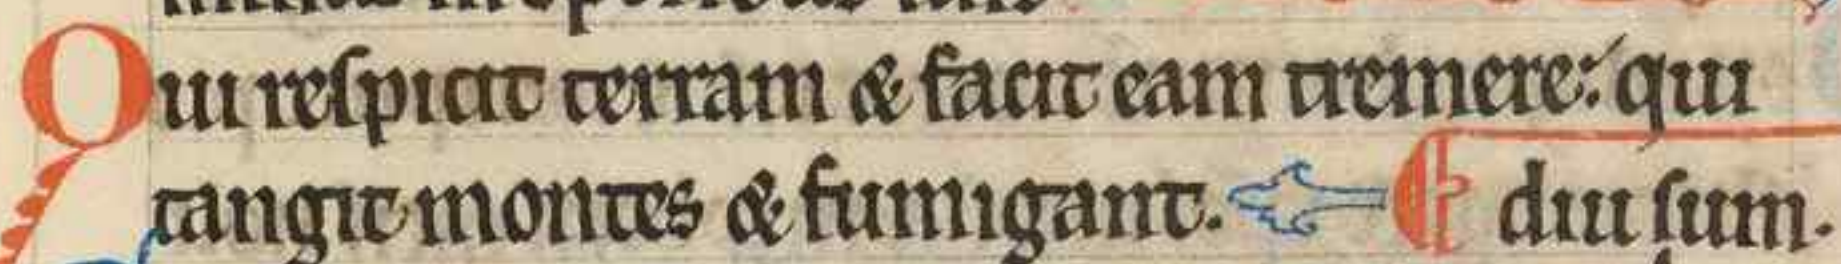 Qui respicit terram & facit eam tremere: qui
tangit montes & fumigant. ¶ diu sum.